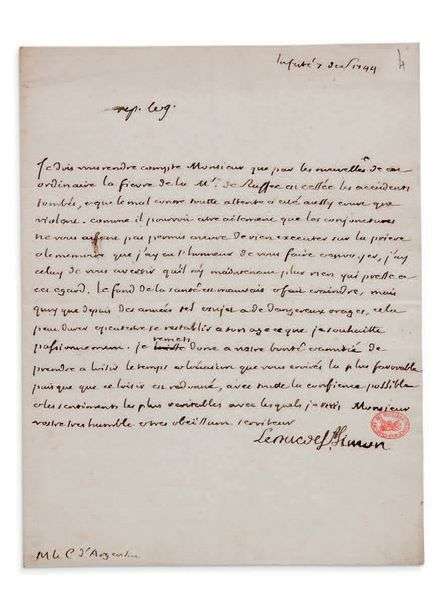 Laferté 7 dec 1744
4
rep. le 9.
Je dois vous rendre compte Monsieur que par les nouvelles de cet
ordinaire la fievre de la M. de Ruffec est cessée les accidents
tombés, et que le mal contre toutte attente a esté aussy court que
violent. comme il pourroit estre que les conjonctures
ne vous aye pas permis encore de rien executer sur la priere
et le memoire que j'ay eu l'honneur de vous faire j'ay
celuy de vous avertir qu'il n'y a maintenant plus rien qui presse a
cet egard. le fond de la santé est mauvais et fait craindre, mais
quoy que depuis des années tel sujet a de dangereux orages, cela
peut durer et se restablir a son age ce que je souhaitte
passionnement. je remets donc a vostre bonté et amitié de
prendre a loisir le temps et l'occasion que vous croirés la plus favorable
puisque que ce loisir est redonné, avec toutte la confience possible
et les sentiments les plus veritables avec lesquels je suis Monsieur
vostre tres humble et tres obeissant serviteur
Le duc de St Simon
M. le C. d'Argenson